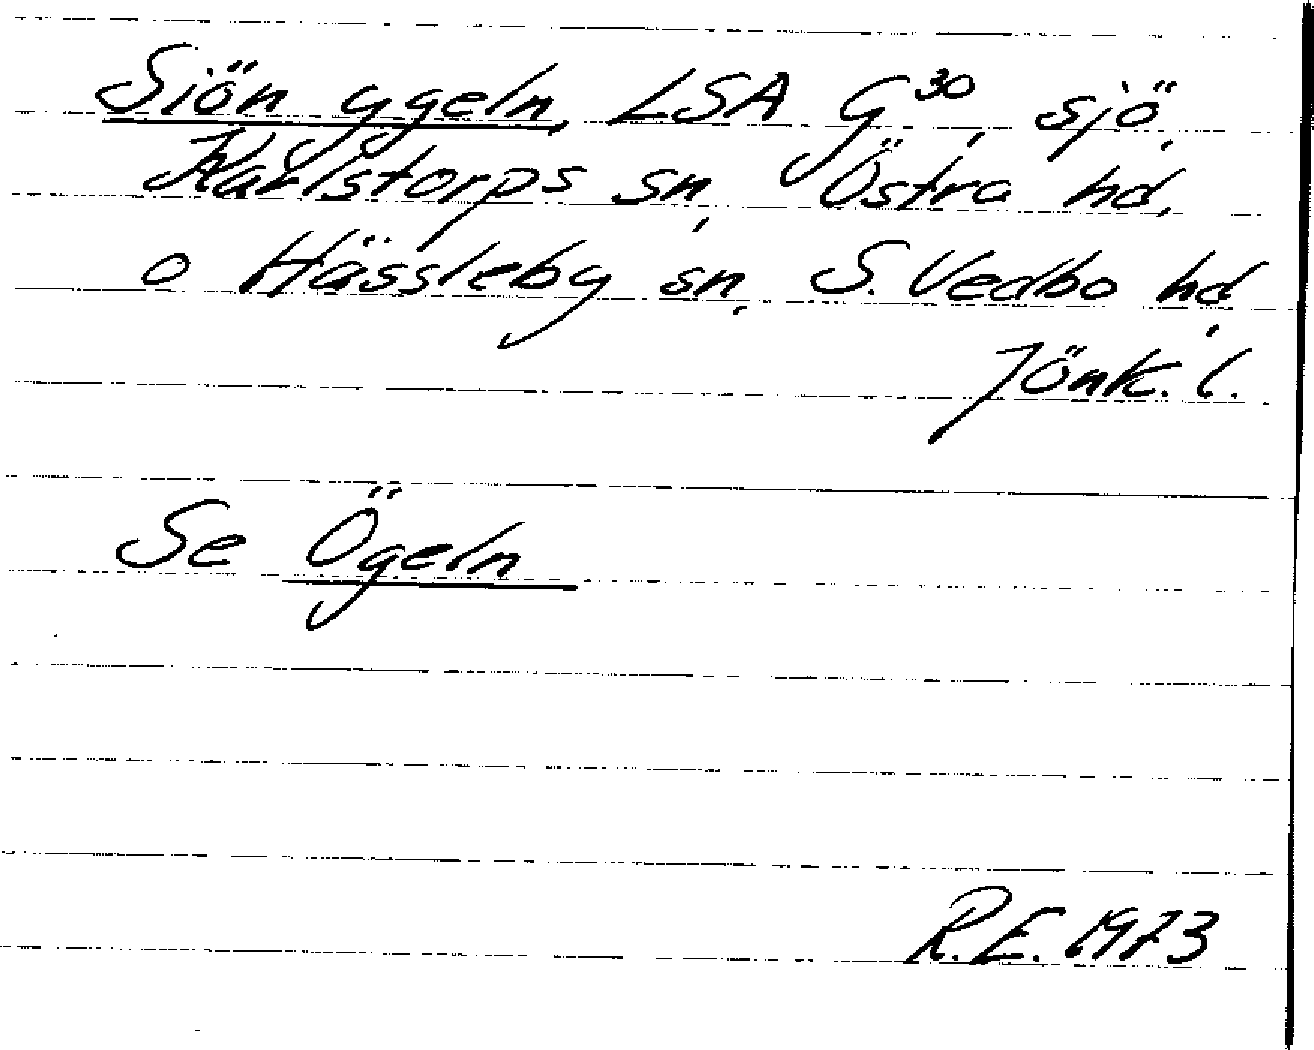 Siön ygeln, LSA G30, sjö,
Karlstorps sn, Östra hd,
o Hässleby sn, S. Vedbo hd,
Jönk. l.
Se Ögeln
R.E. 1973